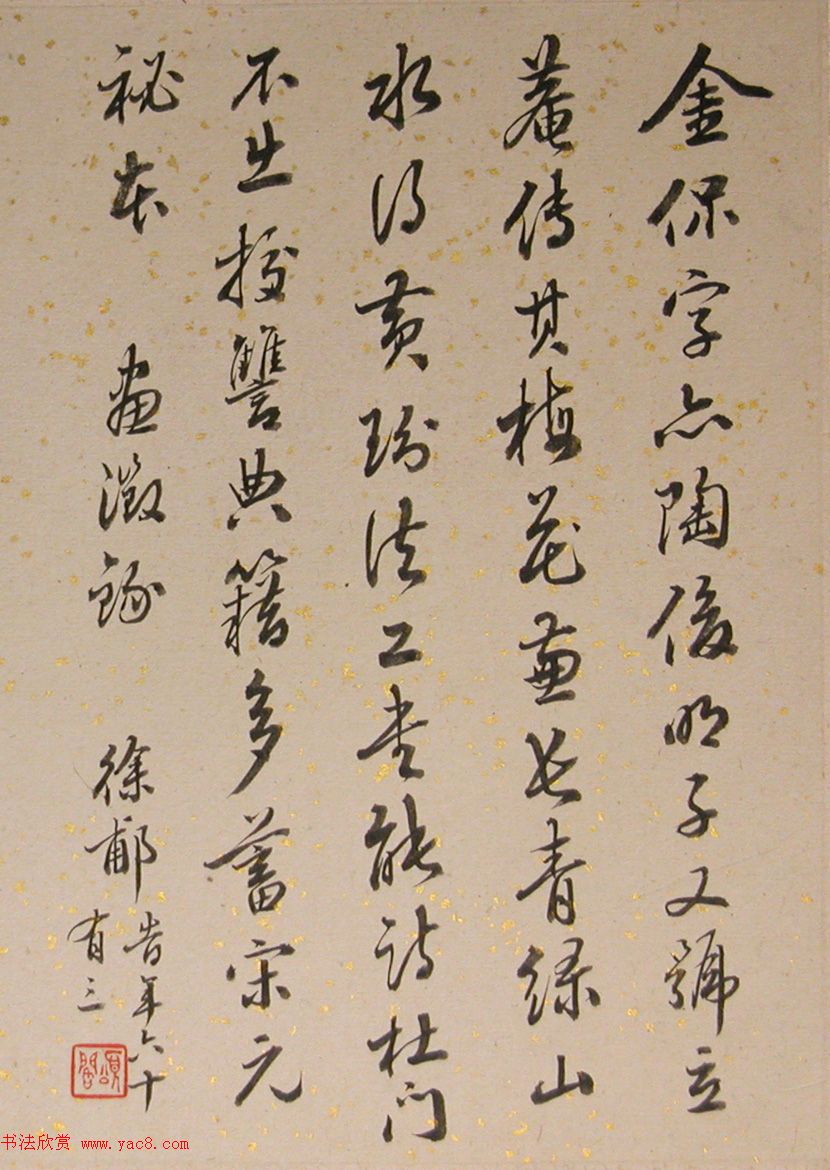 金侃字亦陶俊明子又號立
菴傳其梅花兼長青綠山
水得黃玢法工書能詩杜門
不出校讐典籍多蓄宋元
秘本 畫徵錄
徐郙 時年六十
有三
頌閣
书法欣赏 www.yac8.com